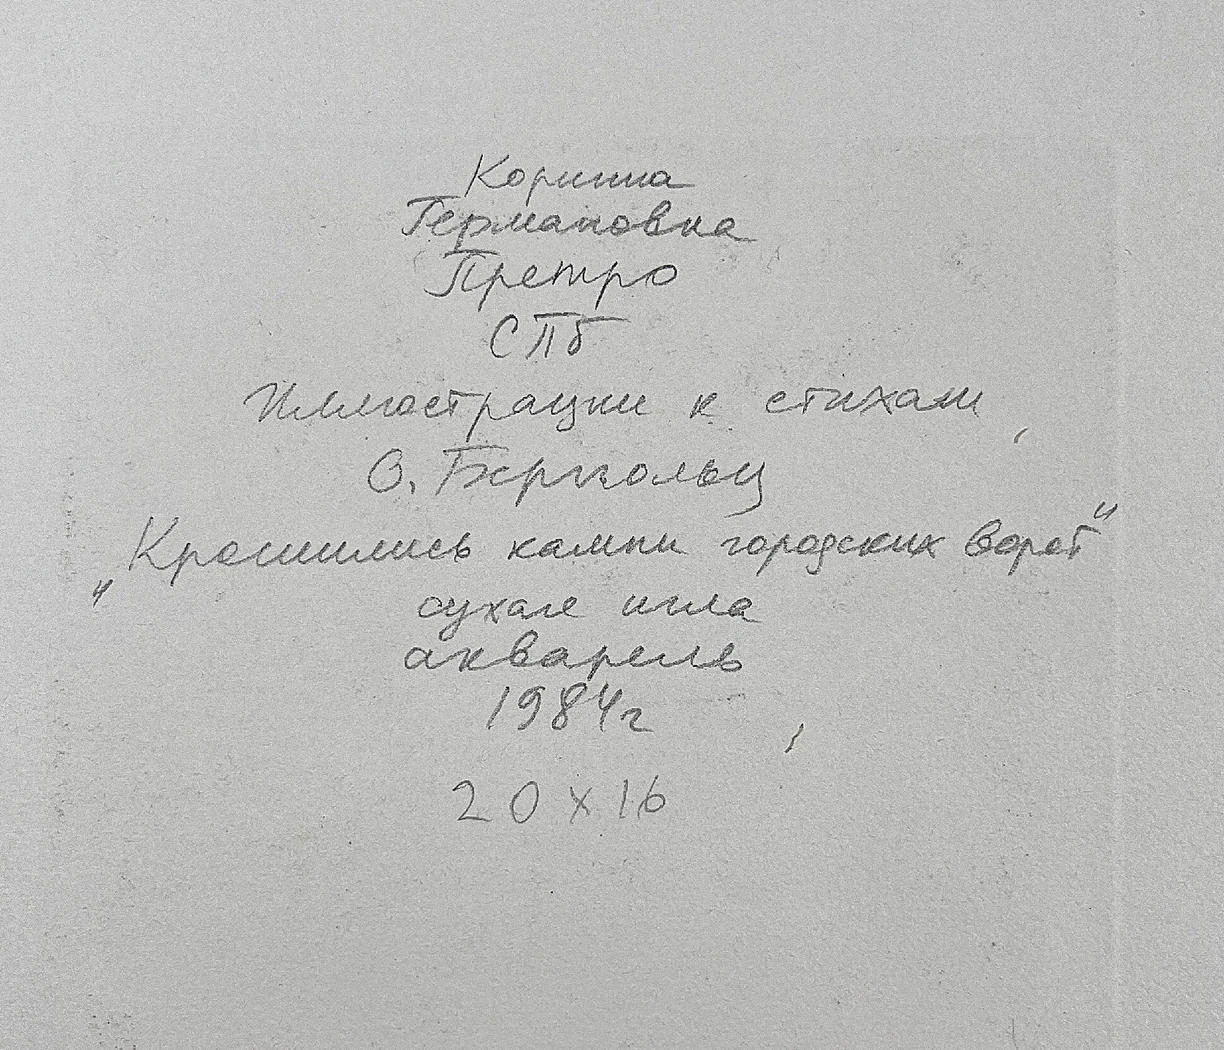 Коринна
Германовна
Претро
СПб
Иллюстрации к стихам
О. Берггольц
„Крошились камни городских ворот"
сухая игла
акварель
1984г
20 х 16